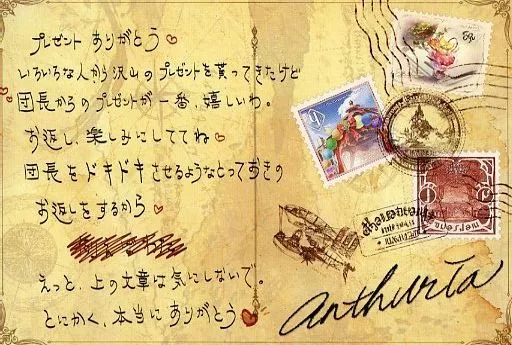 プレゼント ありがとう♡
いろいろな人から沢山のプレゼントを貰ってきたけど
団長からのプレゼントが一番、嬉しいわ。
お返し、楽しみにしててね♡
団長をドキドキさせるようなとっておきの
お返しをするから♡
えっと、上の文章は気にしないで。
とにかく、本当にありがとう♡
Anthuria